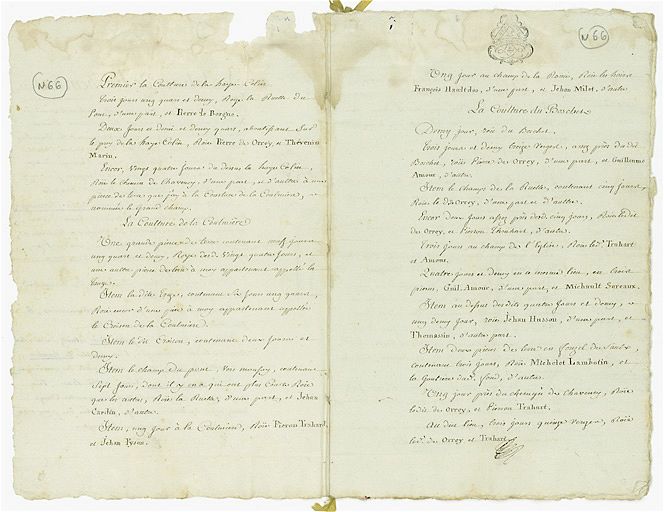 N 66
Premier la Coulture de la haye Colin
trois jours ung quart et demy, Roye la Ruelle du
Pont, d'une part, et Pierre le Borgne.
Deux Jours et demi et demy quart, aboutissant Sur
le prey de la haye Colin, Roie Pierre de Orrey et Thevenin
Marin.
Encor, Vingt quatre Jours du dessus la haye Colin,
Roie le chemin de Chaveney, d'une part, et d'autre à une
piece de terre que fey à la Coulture de la Coulmiere,
nommée le Grand champ.
La Coulture de la Coulmiere
Une grande piece de terre contenant Jours
ung quart et demy, Royes desd. Vingt quatre Jours, et
une autre piece de terre à moy appartenant appellée la
Item la dite contenant Six Jours ung quart,
Roie d'une pièce à moy appartenant appellée
le Croson de la Coulmiere.
Item le dit Croson, contenant deux Jours et
demy.
Item le champ du pont, contenant
Sept Jours, dont il y en a qui ont plus Courtes Roie
que les autres, Roie la Ruelle, d'une part, et Jehan
Cardin, d'autre.
Item, ung Jour à la Coulmiere, Roie Pieron Trahard,
et Jehan Tyson.
N 66
Ung Jour au champ de la Roie les hoirs
François Haultedos, d'une part, et Jehan Milet, d'autre
La Coulture du Boschet
Demy Jour, roie du Boschet.
Trois Jours et demy treize Verges, assez près du dit
Boschet, roie Pierre de Orrey, d'une part, et Guillemme
Amour, d'autre.
Item le champs de la Ruelle, contenant cinq Jours,
Roie le d. Orrey, d'une part et d'autre.
Encor deux Jours assez près desd. cinq Jours, Roie ledit
de Orrey, et Pieron d'autre.
Trois Jours au champ de l'Eglise, Roie led. Trahart
et Amour.
Quatre Jours et demy en ce mesme lieu, en trois
pieces, Guil. Amour, d'une part, et Michault Sureaux.
Item au dessus des dits quatre Jours et demy,
ung demy Jour, roie Jehan Husson, d'une part, et
Thomassin, d'autre part.
Item deux pieces de terre en
contenant trois Jours, Roie Michelet Lambotin, et
la d'autre.
Ung Jour près du chemin de Chaveney, Roie
ledit de Orrey, et Pieron Trahart.
Au dit lieu, trois Jours quinze verges, Roie
led. de Orrey et Trahart.